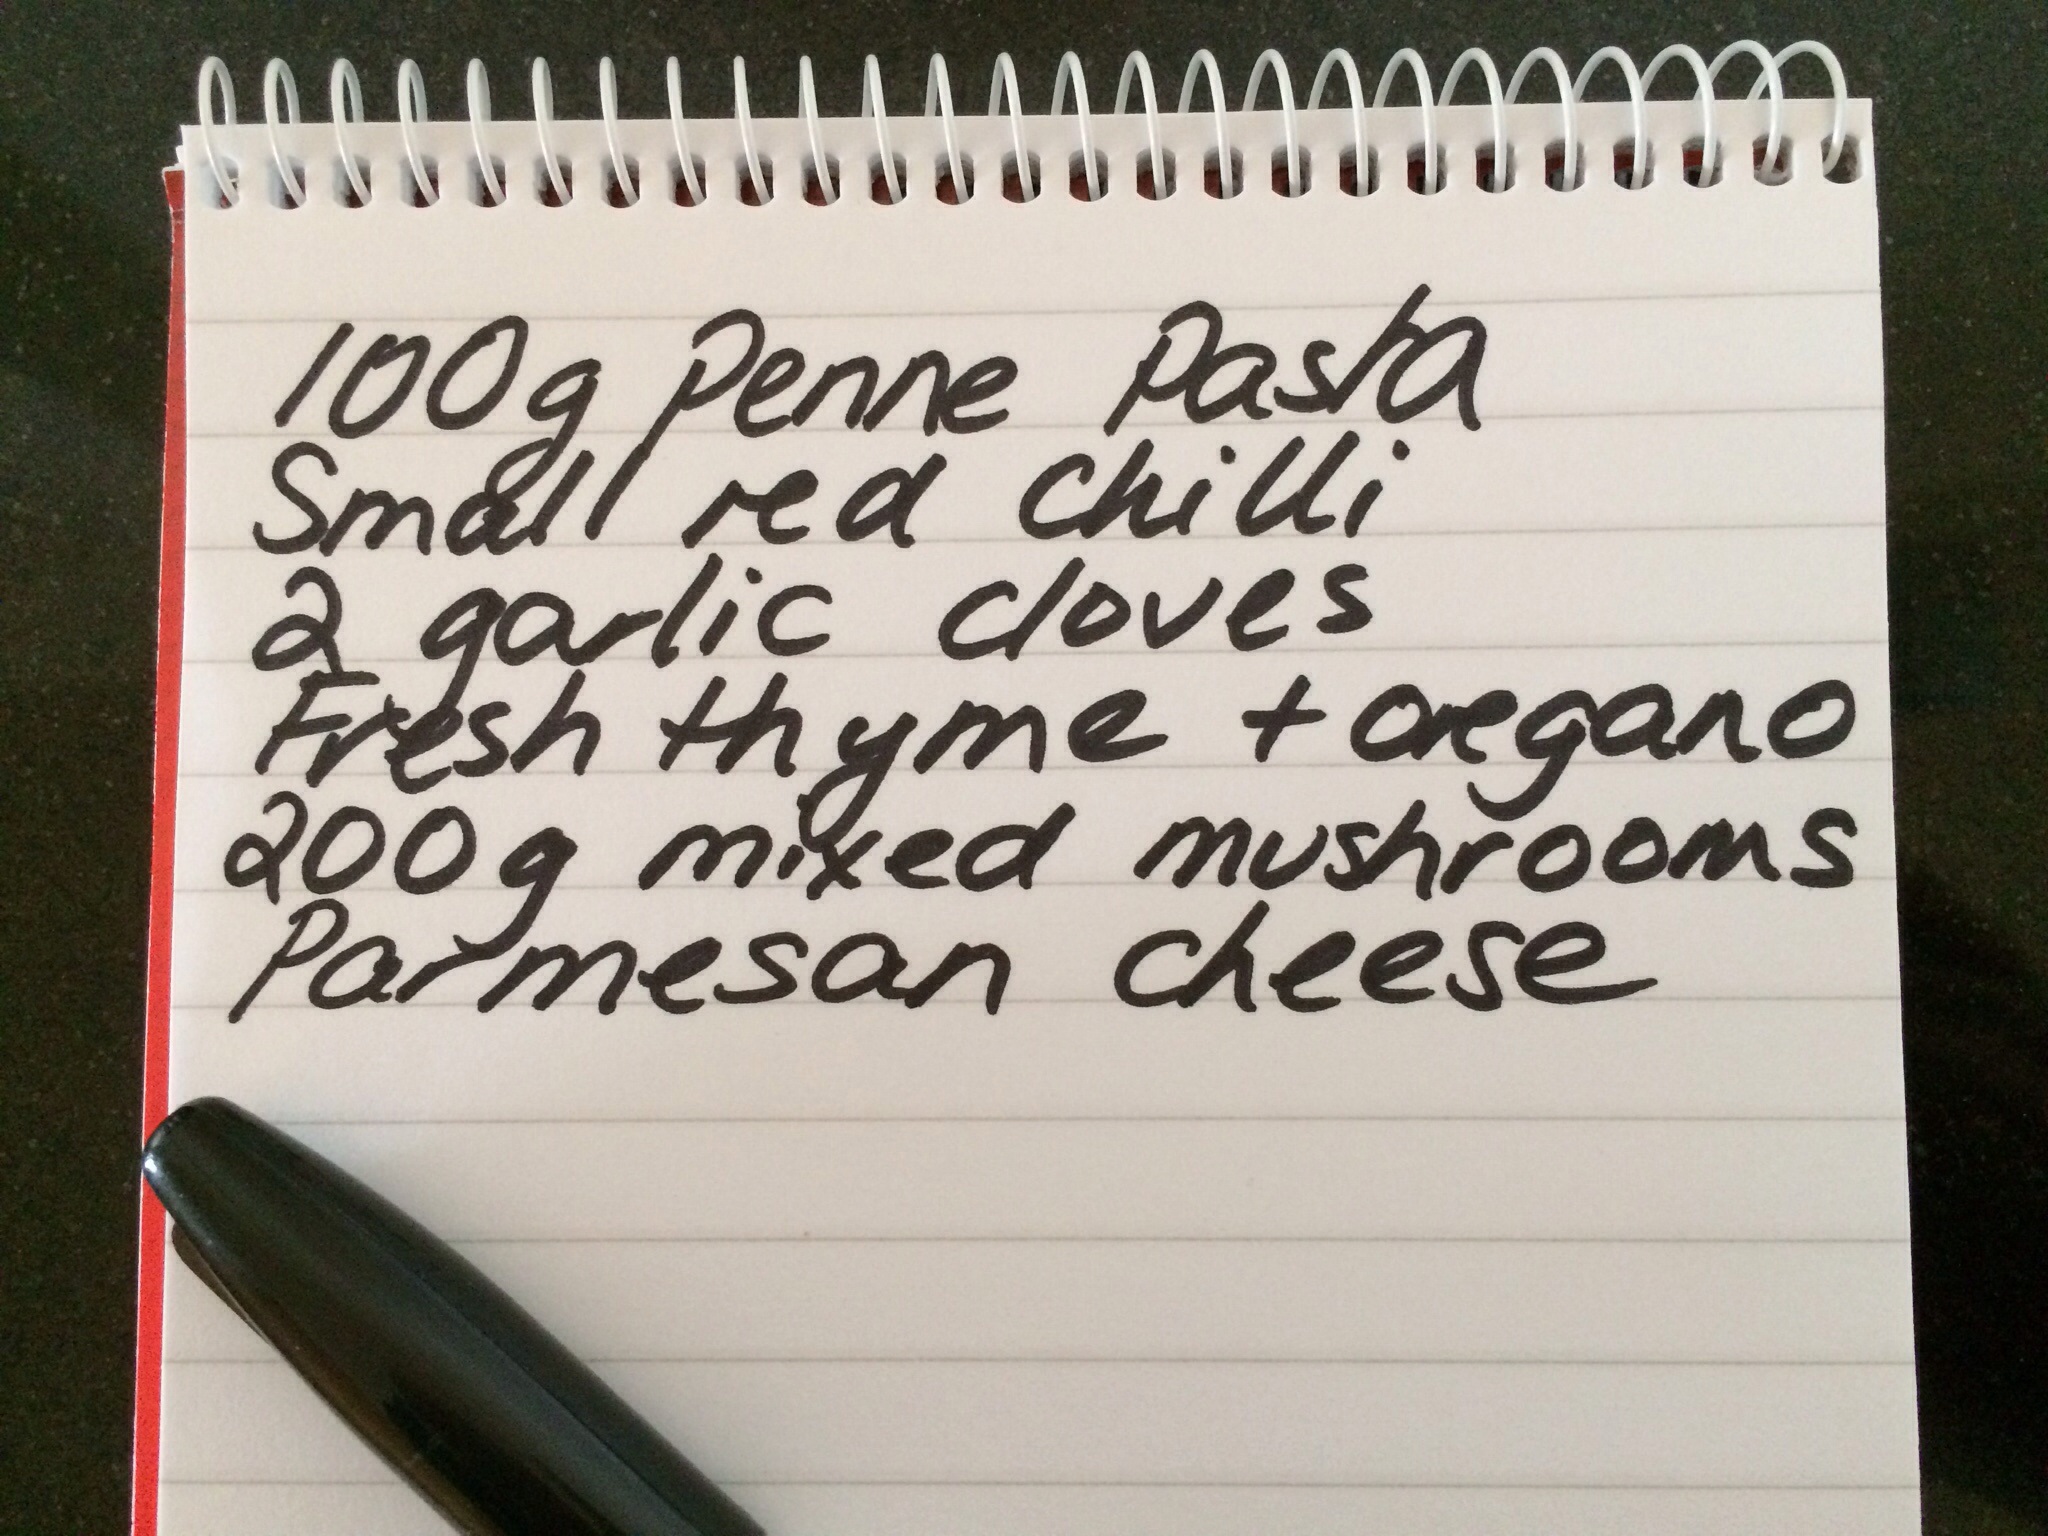 100g Penne Pasta
Small red chilli
2 garlic cloves
Fresh thyme + oregano
200g mixed mushrooms
Parmesan cheese